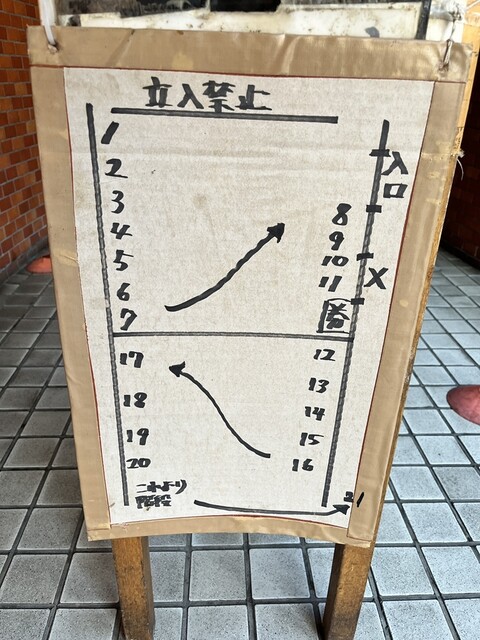 立入禁止
入口
1
2
3
4
5
6
7
8
9
10
11
券
X
17
18
19
20
12
13
14
15
16
これより
階段
21